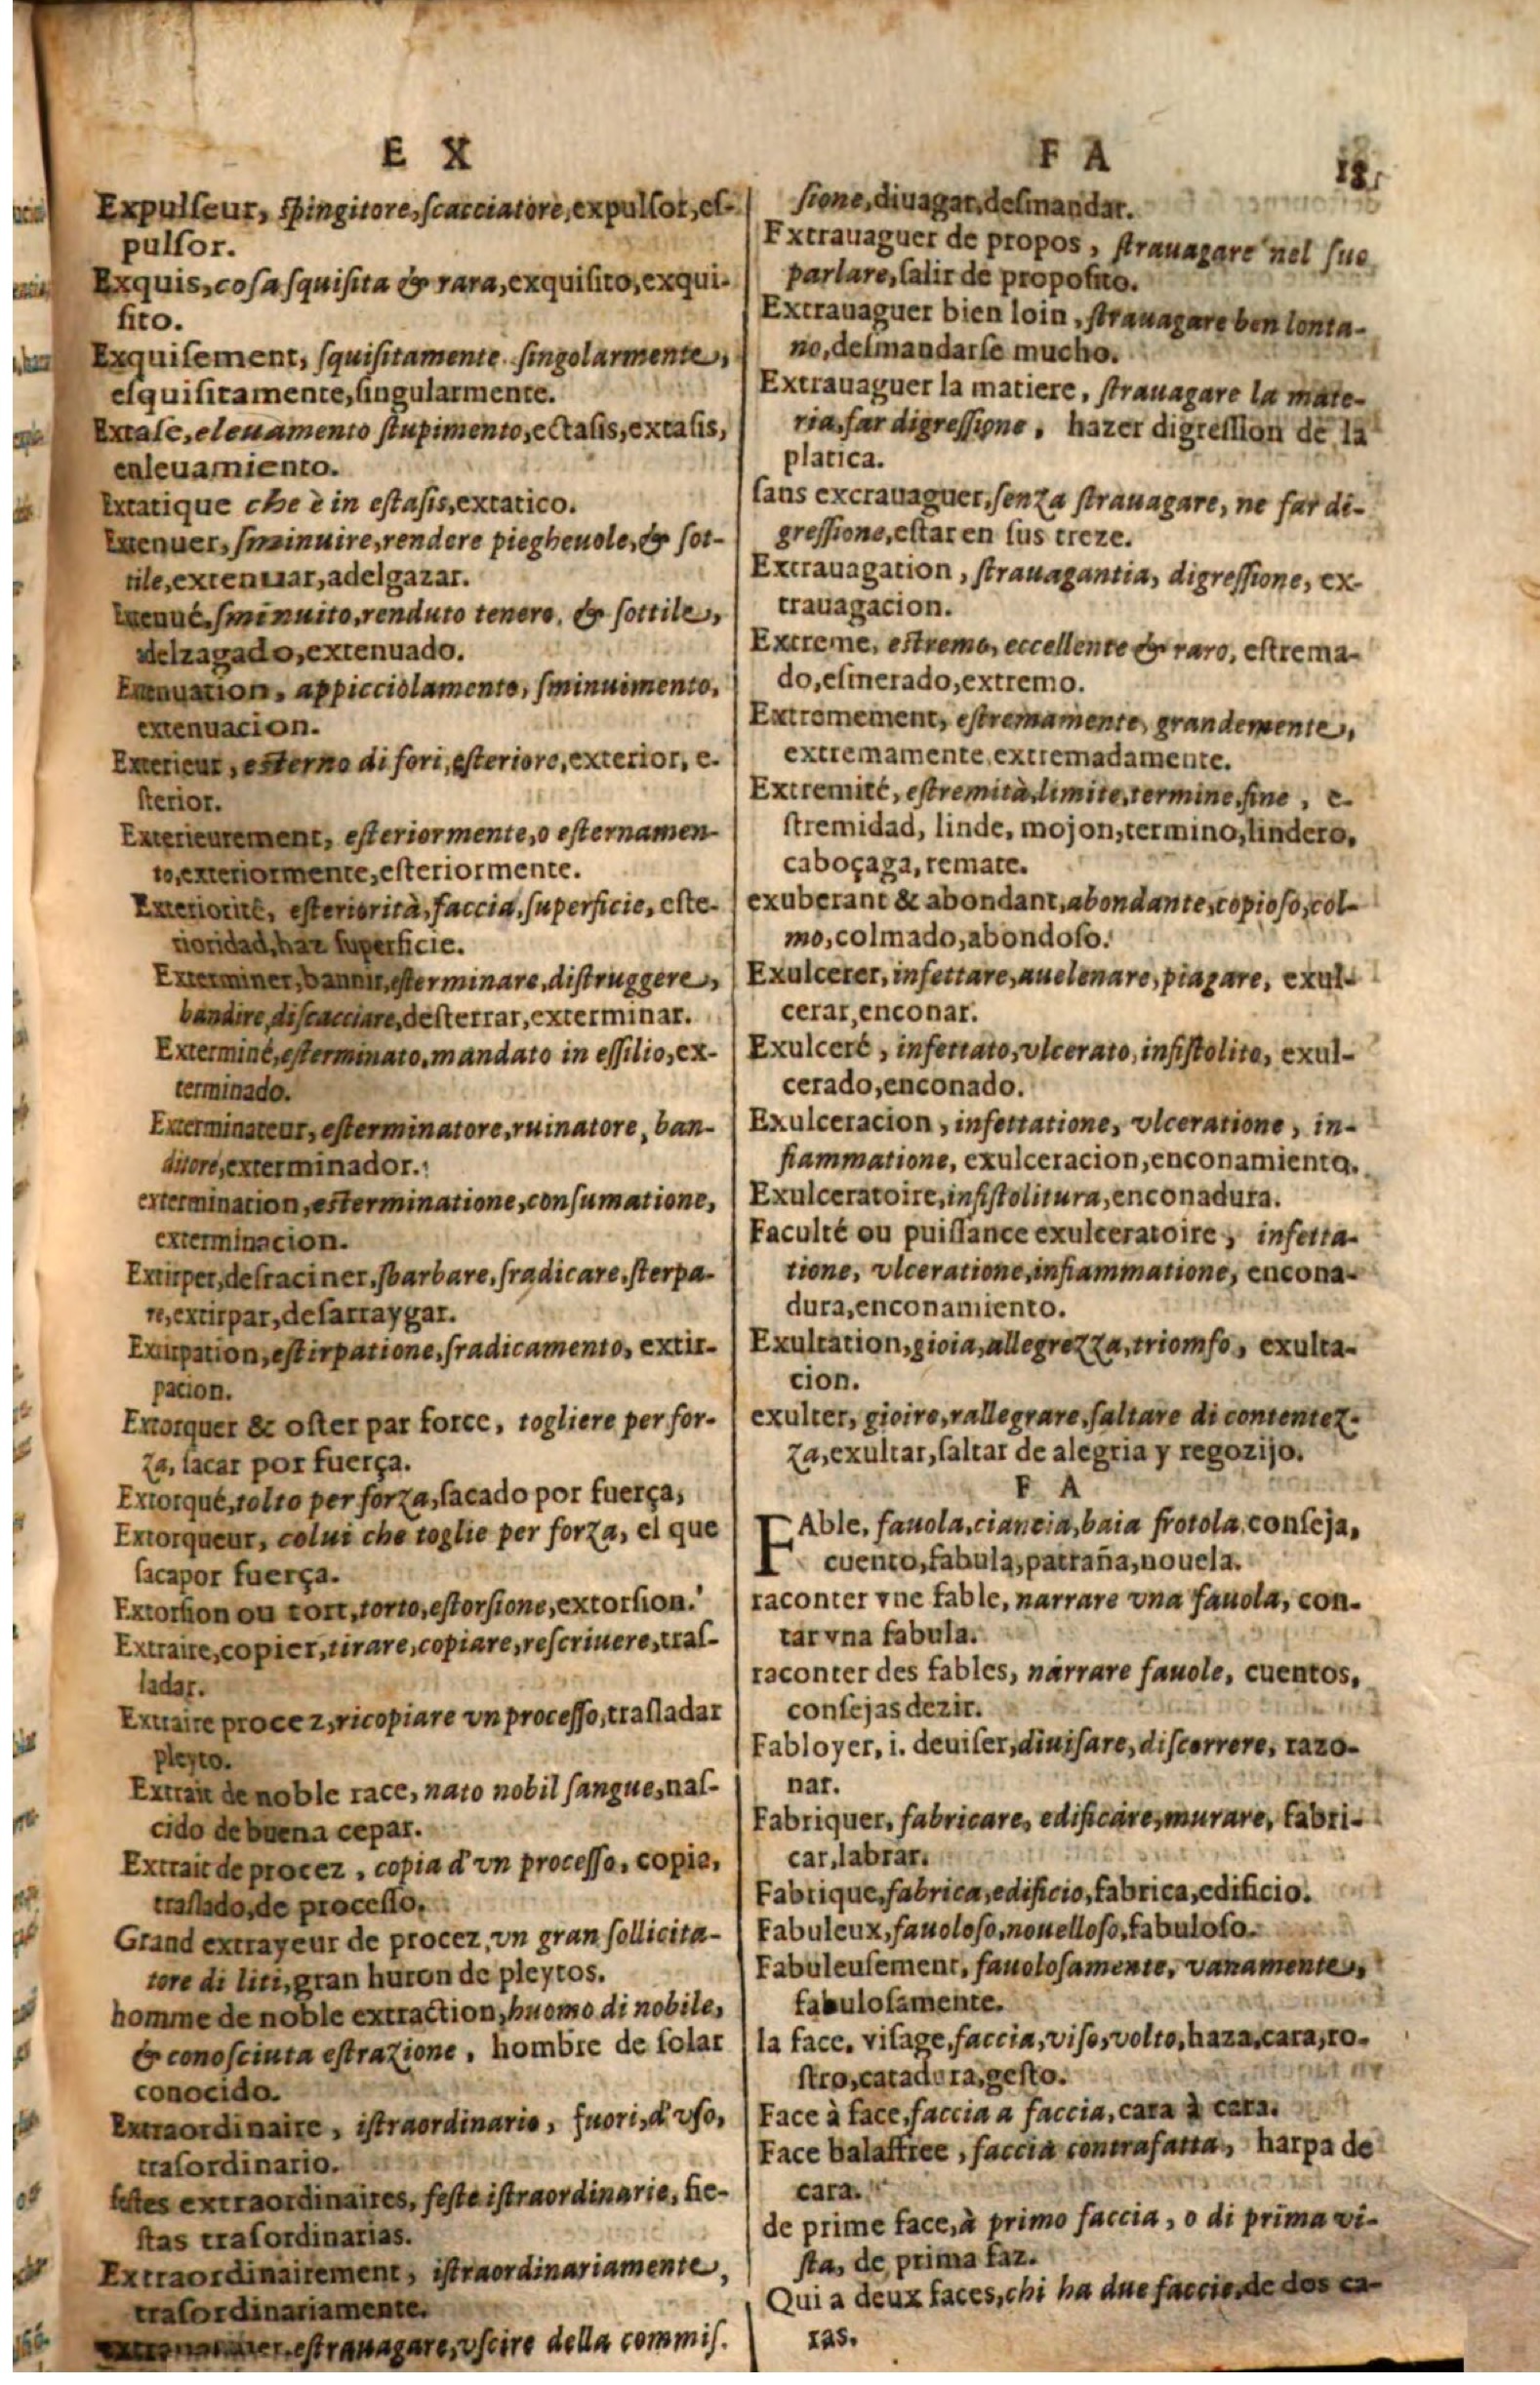 E X
Expulſeur, ſpingitore,ſcacciatore,expulſor,eſ-
pulſor.
Exquis,coſa ſquiſita & rara,exquiſito,exqui-
ſito.
Exquiſement, ſquiſitamente ſingolarmente,
eſquiſitamente,ſingularmente.
Extaſe,eleuamento ſtupimento,ectaſis,extaſis,
enleuamiento.
Extatique che è in eſtaſis,extatico.
Extenuer,ſminuire,rendere piegheuole,& ſot-
tile,extenuar,adelgazar.
Extenué,ſminuito,renduto tenero, & ſottile,
adelzagado,extenuado.
Extenuation, appicciolamento, ſminuimento,
extenuacion.
Exterieur, eſterno di fori,eſteriore,exterior, e-
ſterior.
Exterieurement, eſteriormente,o eſternamen-
to,exteriormente,eſteriormente.
Exteriorité, eſteriorità,faccia,ſuperficie, eſte-
rioridad,haz ſuperficie.
Exterminer,bannir,eſterminare,diſtruggere,
bandire,diſcacciare,deſterrar,exterminar.
Exterminé,eſterminato,mandato in eſſilio,ex-
terminado.
Exterminateur,eſterminatore,ruinatore, ban-
ditore,exterminador.
extermination,eſterminatione,conſumatione,
exterminacion.
Extirper,deſraciner,ſbarbare,ſradicare,ſterpa-
re,extirpar,deſarraygar.
Extirpation,eſtirpatione,ſradicamento, extir-
pacion.
Extorquer & oſter par force, togliere per for-
za, ſacar por fuerça.
Extorqué,tolto per forza,ſacado por fuerça,
Extorqueur, colui che toglie per forza, el que
ſacapor fuerça.
Extorſion ou tort,torto,eſtorſione,extorſion.
Extraire,copier,tirare,copiare,reſcriuere,traſ-
ladar.
Extraire procez,ricopiare vn proceſſo,traſladar
pleyto.
Extrait de noble race, nato nobil ſangue,naſ-
cido de buena cepar.
Extrait de procez , copia d'vn proceſſo, copia,
traſlado,de proceſſo.
Grand extrayeur de procez,vn gran ſollicita-
tore di liti,gran huron de pleytos.
homme de noble extraction,huomo di nobile,
& conoſciuta eſtrazione , hombre de ſolar
conocido.
Extraordinaire , iſtraordinario, fuori,d'vſo,
traſordinario.
feſtes extraordinaires, feſte iſtraordinarie, fie-
ſtas traſordinarias.
Extraordinairement, iſtraordinariamente,
traſordinariamente.
eſtrauagare,vſcire della commiſ.
F A
ſione,diuagar,deſmandar.
Extrauaguer de propos , ſtrauagare nel ſuo
parlare,ſalir de propoſito.
Extrauaguer bien loin , ſtrauagare ben lonta-
no,deſmandarſe mucho.
Extrauaguer la matiere, ſtrauagare la mate-
ria,far digreſſione, hazer digreſſion de la
platica.
ſans excrauaguer,ſenza ſtrauagare, ne far di-
greſſione,eſtar en ſus treze.
Extrauagation , ſtrauagantia, digreſſione, ex-
trauagacion.
Extreme, eſtremo, eccellente & raro, eſtrema-
do,eſmerado,extremo.
Extremement, eſtremamente, grandemente,
extremamente,extremadamente.
Extremité, eſtremità,limite,termine,fine , e-
ſtremidad, linde, mojon,termino,lindero,
caboçaga, remate.
exuberant & abondant,abondante,copioſo,col-
mo,colmado,abondoſo.
Exulcerer, infettare,auelenare,piagare, exul-
cerar,enconar.
Exulceré , infettato,vlcerato,infiſtolito, exul-
cerado,enconado.
Exulceracion , infettatione, vlceratione , in-
fiammatione, exulceracion,enconamiento.
Exulceratoire,infiſtolitura,enconadura.
Faculté ou puiſſance exulceratoire, infetta-
tione, vlceratione,infiammatione, encona-
dura,enconamiento.
Exultation,gioia,allegrezza,triomfo, exulta-
cion.
exulter, gioire,rallegrare,ſaltare di contentez-
za,exultar,ſaltar de alegria y regozijo.
F A
FAble, fauola,ciancia,baia frotola,conſeja,
cuento,fabula,patraña,nouela.
raconter vne fable, narrare vna fauola, con-
tar vna fabula.
raconter des fables, narrare fauole, cuentos,
conſejas dezir.
Fabloyer, i. deuiſer,diuiſare,diſcorrere, razo-
nar.
Fabriquer, fabricare, edificare,murare, fabri-
car,labrar.
Fabrique,fabrica,edificio,fabrica,edificio.
Fabuleux,fauoloſo,nouelloſo,fabuloſo.
Fabuleuſement, fauoloſamente, vanamente,
fabuloſamente.
la face, viſage,faccia,viſo,volto,haza,cara,ro-
ſtro,catadura,geſto.
Face à face,faccia a faccia,cara à cara.
Face balaffree , faccia contrafatta, harpa de
cara.
de prime face,à primo faccia, o di prima vi-
ſta, de prima faz.
Qui a deux faces,chi ha due faccie,de dos ca-
ras.